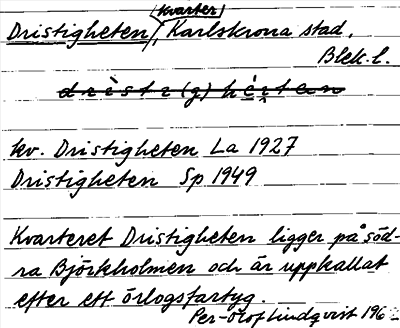 kvarter
Dristigheten, Karlskrona stad,
Blek. l.
kv. Dristigheten La 1927
Dristigheten Sp 1949
Kvarteret Dristigheten ligger på söd-
ra Björkholmen och är uppkallat
efter ett örlogsfartyg.
Per-Olof Lindqvist 196